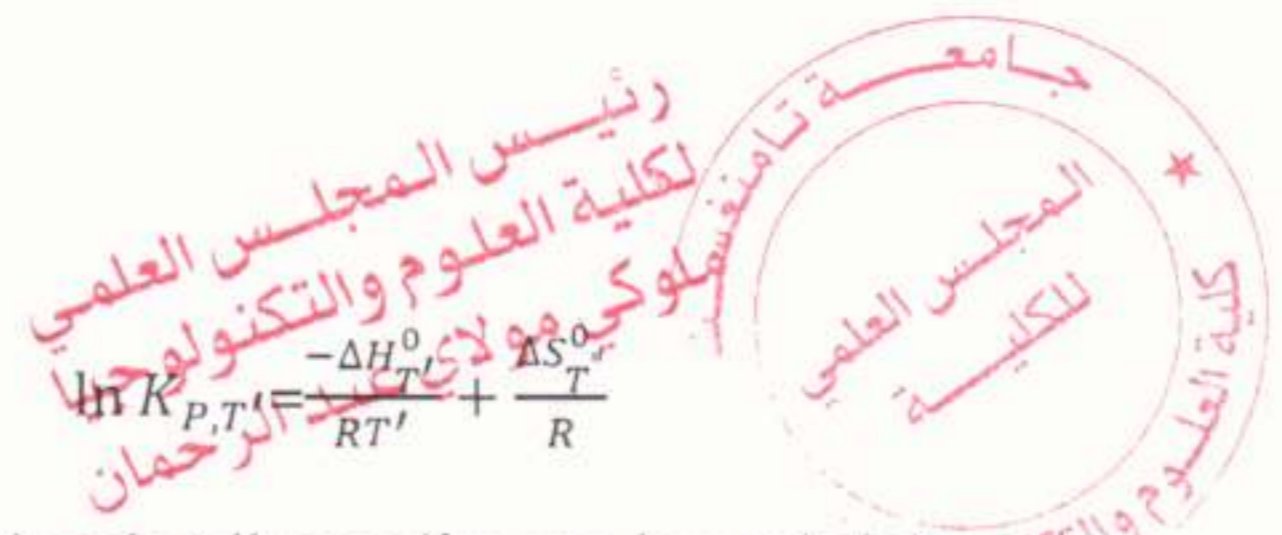 رئيس المجلس العلمي
لكلية العلوم والتكنولوجيا
ملوكي مولاي عبد الرحمان
جامعة
المجلس العلمي
للكلية
★ كلية العلوم
ln K_{P,T'} = \frac{-ΔH^0_{T'}}{RT'} + \frac{ΔS^0_{T'}}{R}